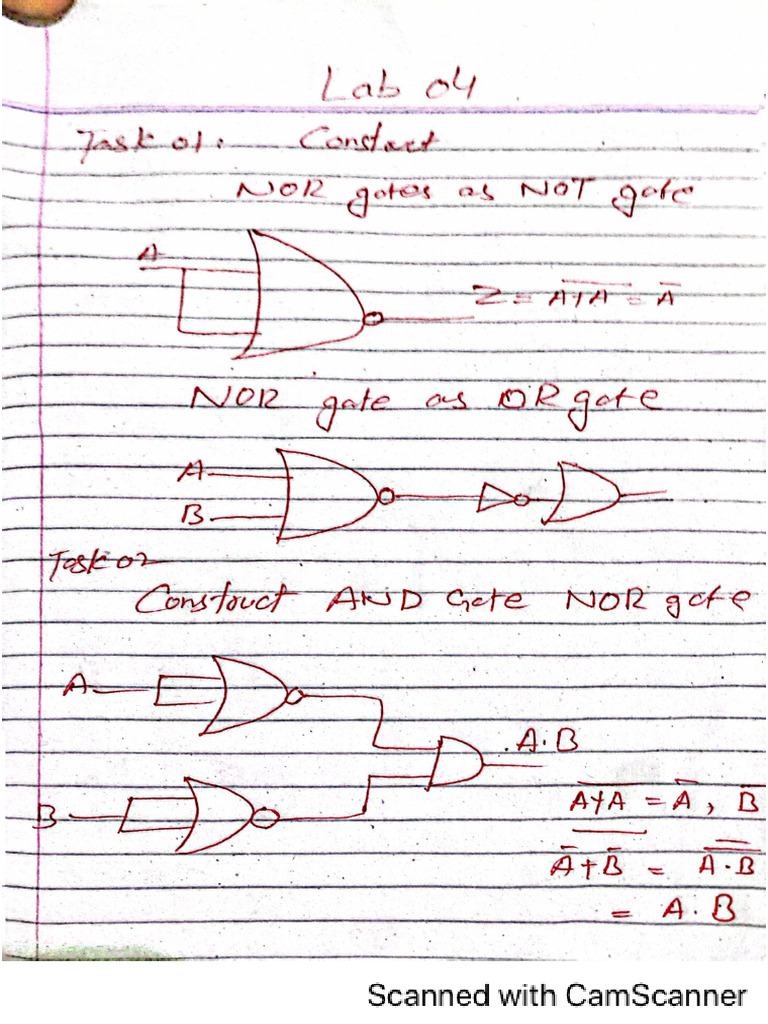 Lab 04
Task 01: Construct
NOR gates as NOT gate
A
Z = A̅+̅A̅ = A̅
NOR gate as OR gate
A
B
Task 02
Construct AND Gate NOR gate
A
A.B
B
A̅+̅A̅ = A̅, B̅
A̅+B̅ = A.B
= A.B
Scanned with CamScanner